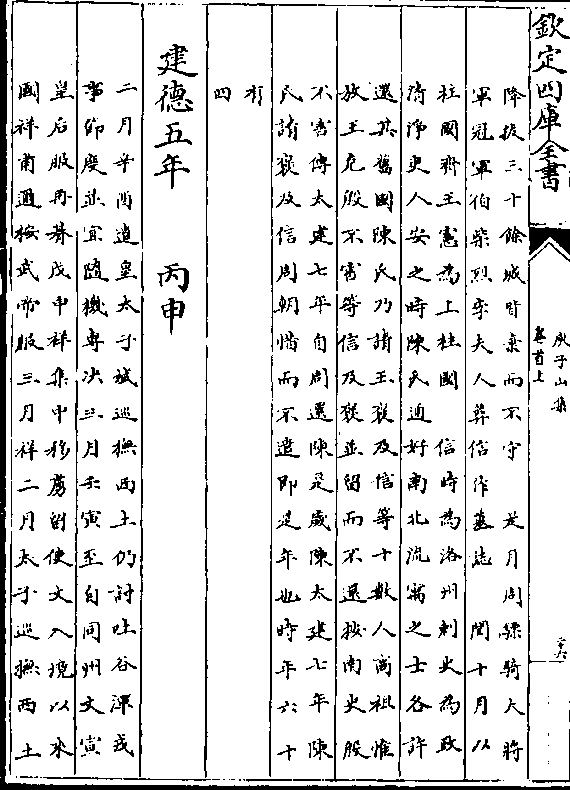 欽定四庫全書
庾子山集
卷首上
二十六
降拔三十餘城皆棄而不守　是月周驃騎大將
軍冠軍伯柴烈李夫人葬信作墓誌　閏十月以
柱國齊王憲為上柱國　信時為洛州刺史為政
清淨吏人安之時陳氏通好南北流寓之士各許
還其舊國陳氏乃請王褒及信等十數人高祖惟
放王克殷不害等信及褒並留而不還按南史殷
不害傳太建七年自周還陳是歲陳太建七年陳
氏請褒及信周朝惜而不遣即是年也時年六十
有
四
建德五年　丙申
二月辛酉遣皇太子贇巡撫西土仍討吐谷渾戎
事節度並宜隨機專決三月壬寅至自同州文宣
皇后服再朞戊申祥集中移虜留使文入境以來
國祥甫邇按武帝服三月祥二月太子巡撫西土